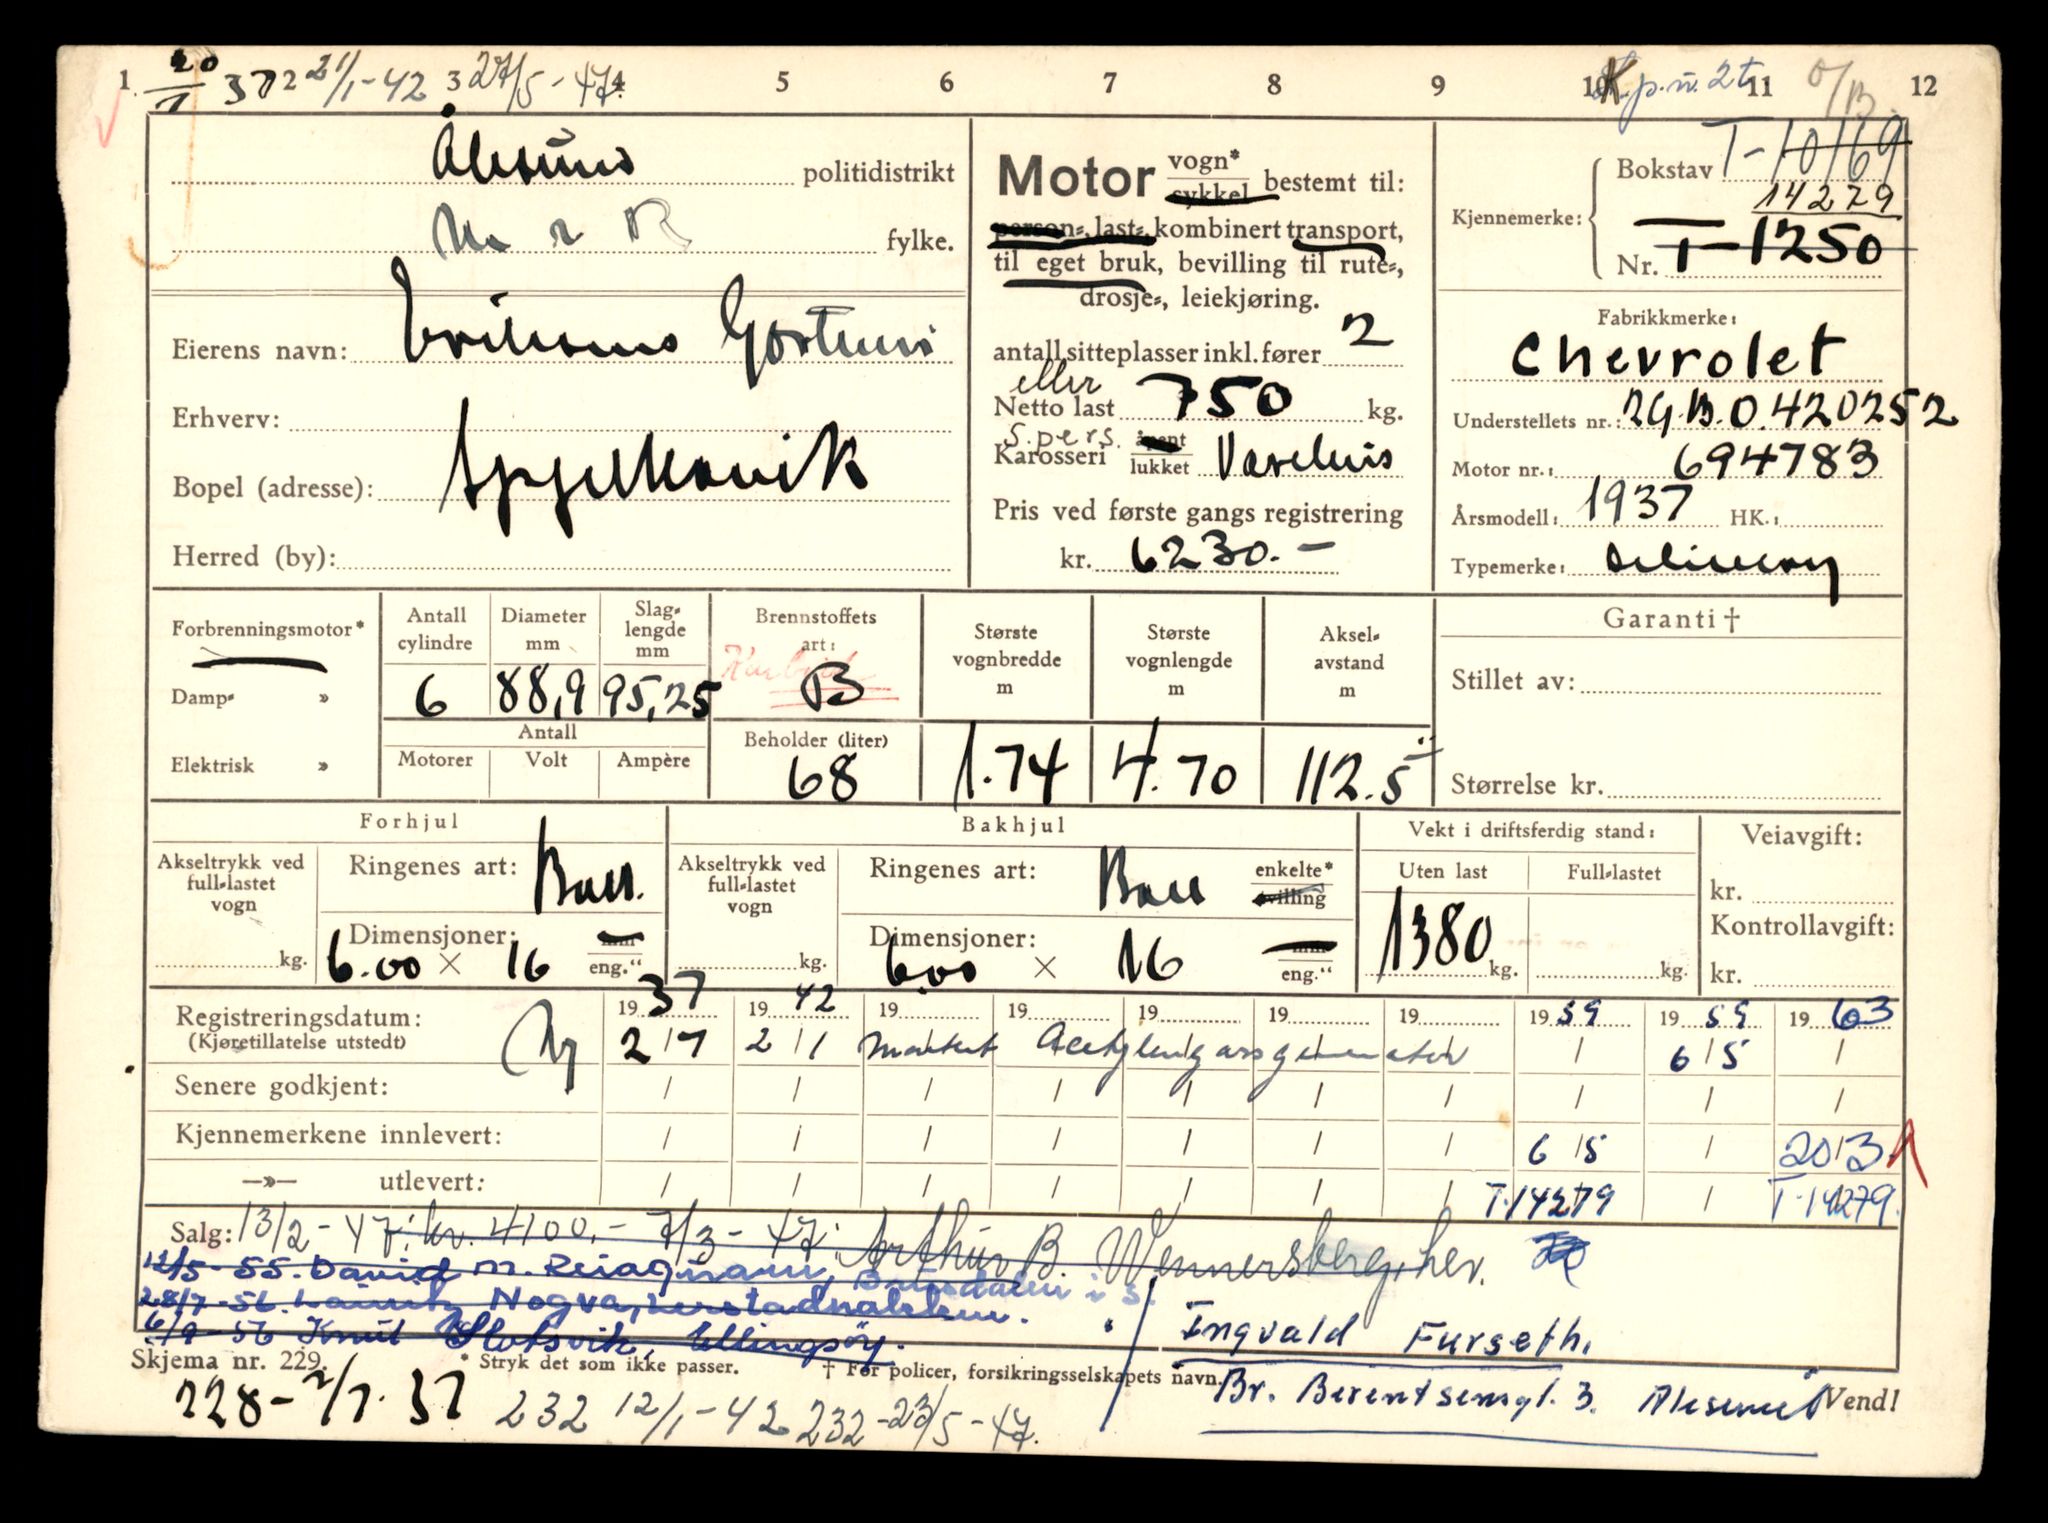 1 20/7 37 2 21/1-42 3 27/5-47 4 5 6 7 8 9 10 K.p.n. 2t 11 12
Ålesund politidistrikt
M o R fylke.
Eierens navn: Gartneri
Erhverv:
Bopel (adresse): Spjelkavik
Herred (by):
Motor vogn* sykkel bestemt til:
person-, last-, kombinert transport,
til eget bruk, bevilling til rute-,
drosje-, leiekjøring.
antall sitteplasser inkl. fører 2
eller
Netto last 750 kg.
5 pers.
Karosseri åpent lukket Varehus
Pris ved første gangs registrering
kr. 6230.-
Kjennemerke: Bokstav T-10169
14279
T
Nr. T-1250
Fabrikkmerke:
Chevrolet
Understellets nr.: 2G.B.O.420252
Motor nr.: 694783
Årsmodell: 1937 HK.:
Typemerke: delivery
Forbrenningsmotor*
Damp- »
Elektrisk »
Antall cylindre 6
Diameter mm 88,9
Slag-lengde mm 95,25
Antall
Motorer Volt Ampère
Brennstoffets art: Karbid B
Beholder (liter) 68
Største vognbredde m 1.74
Største vognlengde m 4.70
Aksel-avstand m 112.5"
Garanti †
Stillet av:
Størrelse kr.
Forhjul
Akseltrykk ved full-lastet vogn kg.
Ringenes art: Ball.
Dimensjoner: 6.00 × 16 mm eng."
Bakhjul
Akseltrykk ved full-lastet vogn kg.
Ringenes art: Ball enkelte* tvilling
Dimensjoner: 6.00 × 16 mm eng."
Vekt i driftsferdig stand:
Uten last Full-lastet
1380 kg. kg.
Veiavgift:
kr.
Kontrollavgift:
kr.
1937 1942 19 19 19 19 19 1959 1959 1963
Registreringsdatum: Ny 2/7 2/1 montert Acetylengassgenerator / 6/5 /
(Kjøretillatelse utstedt)
Senere godkjent: / / / / / / / / / /
Kjennemerkene innlevert: / / / / / / / 6/5 / 20/3
—»— utlevert: / / / / / / / T-14279 / T-14279.
Salg: 13/2-47: kr. 4100.- 7/3-47: Arthur B. Wennersberg, her.
12/5-55. David M. Reiagmann,
28/7-56. Nogva,
6/9-56 Knut Slotsvik, Ellingsøy.
Ingvald Furseth,
Br. Berentsensgt. 3. Ålesund
Skjema nr. 229. * Stryk det som ikke passer. † For policer, forsikringsselskapets navn. Vend!
228-2/7.37 232 12/1-42 232-23/5-47.